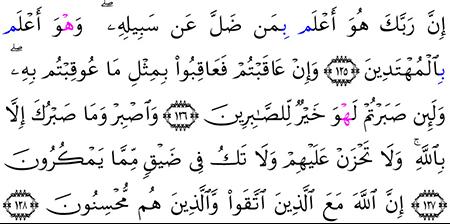 إِنَّ رَبَّكَ هُوَ أَعْلَم بِمَن ضَلَّ عَن سَبِيلِهِۦ ۖ وَهْوَ أَعْلَم
بِٱلْمُهْتَدِينَ ﴿١٢٥﴾ وَإِنْ عَاقَبْتُمْ فَعَاقِبُوا۟ بِمِثْلِ مَا عُوقِبْتُم بِهِۦ ۖ
وَلَئِن صَبَرْتُمْ لَهْوَ خَيْرٌ لِّلصَّـٰبِرِينَ ﴿١٢٦﴾ وَٱصْبِرْ وَمَا صَبْرُكَ إِلَّا
بِٱللَّهِ ۚ وَلَا تَحْزَنْ عَلَيْهِمْ وَلَا تَكُ فِى ضَيْقٍ مِّمَّا يَمْكُرُونَ
﴿١٢٧﴾ إِنَّ ٱللَّهَ مَعَ ٱلَّذِينَ ٱتَّقَوا۟ وَّٱلَّذِينَ هُم مُّحْسِنُونَ ﴿١٢٨﴾